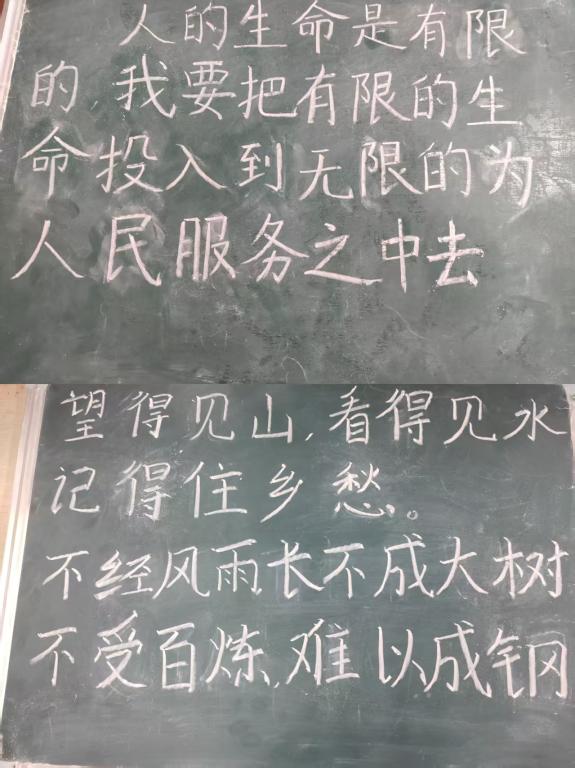 人的生命是有限
的,我要把有限的生
命投入到无限的为
人民服务之中去
望得见山,看得见水
记得住乡愁。
不经风雨长不成大树
不受百炼,难以成钢